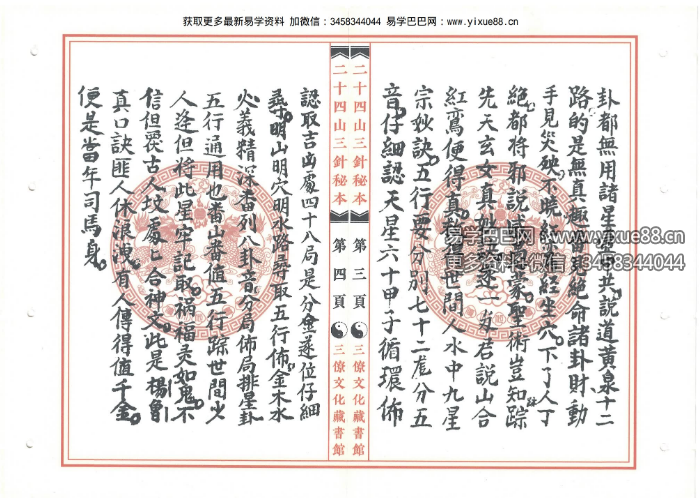 获取更多最新易学资料 加微信：3458344044 易学巴巴网：www.yixue88.cn
卦都無用諸星 共說道黃泉十二
路的是無真趣 見絕命諸卦財動
手見災殃不 經坐穴下了人丁
絕都將邪說 術豈知踪
先天玄女真 逐一 君說山合
紅鸞便得真 世間人水中九星
宗妙訣五行要分別七十二龙分五
音仔細認天星六十甲子循環佈
二十四山三針秘本 第三頁 三僚文化藏書館
二十四山三針秘本 第四頁 三僚文化藏書館
認取吉凶處四十八局是分金逐位仔細
尋明山明穴明水路尋取五行佈金木水
火義精深番列八卦音分局佈局排星卦
五行通用也番山番值五行踪世間少
人逢但將此星牢記取禍福灵如鬼不
信但要古人坟處亡合神文此是楊曾
真口訣匪人休浪洩有人傳得值千金
便是當年司馬身
易学巴巴网：www.yixue88.cn
更多资料微信：3458344044